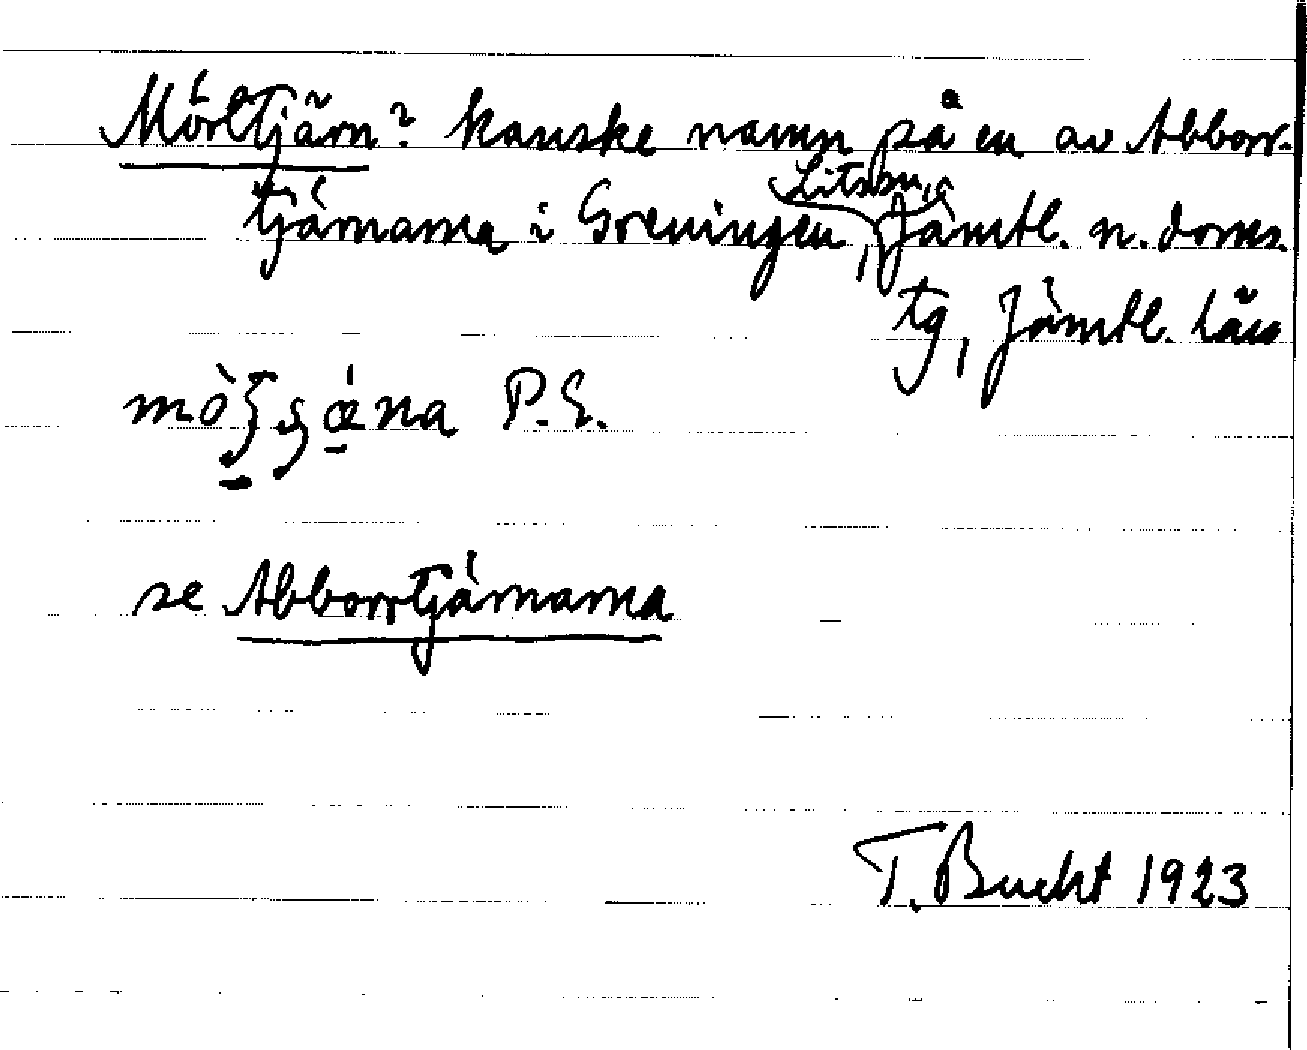 Mörtjärn? kanske namn på en av Abborr-
tjärnarna i Greningen, Litsbn, Jämtl. n. doms.
tg, Jämtl. län
P. E.
se Abborrtjärnarna
T. Bucht 1923